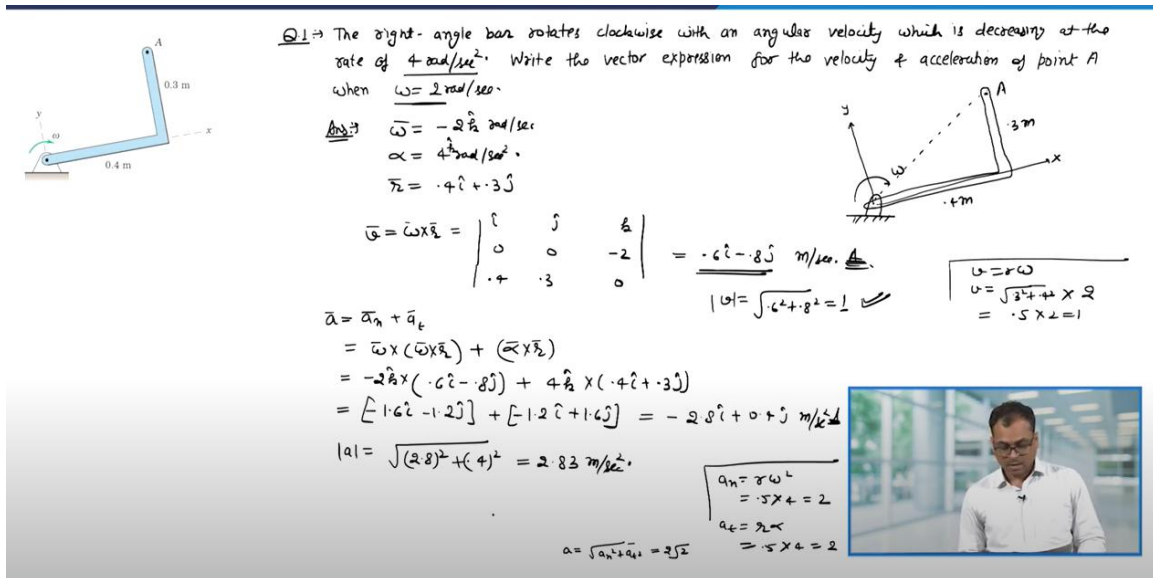 Q.1 → The right-angle bar rotates clockwise with an angular velocity which is decreasing at the
rate of 4 rad/sec². Write the vector expression for the velocity & acceleration of point A
when ω = 2 rad/sec.
A
0.3 m
y
ω
x
0.4 m
Ans:→ ω̄ = -2k̂ rad/sec
α = 4k̂ rad/sec².
r̄ = .4î + .3ĵ
A
y
.3m
ω
x
.4m
v̄ = ω̄×r̄ = | î ĵ k̂ |
| 0 0 -2 |
| .4 .3 0 |
= .6î - .8ĵ m/sec. A
|v| = √.6²+.8² = 1 ✓
v = rω
v = √.3²+.4² × 2
= .5×2 = 1
ā = ān + āt
= ω̄×(ω̄×r̄) + (ᾱ×r̄)
= -2k̂×(.6î-.8ĵ) + 4k̂×(.4î+.3ĵ)
= [-1.6î -1.2ĵ] + [-1.2î +1.6ĵ] = -2.8î + 0.4ĵ m/sec²
|a| = √(2.8)²+(.4)² = 2.83 m/sec².
an = rω²
= .5×4 = 2
at = rα
= .5×4 = 2
a = √an²+at² = 2√2